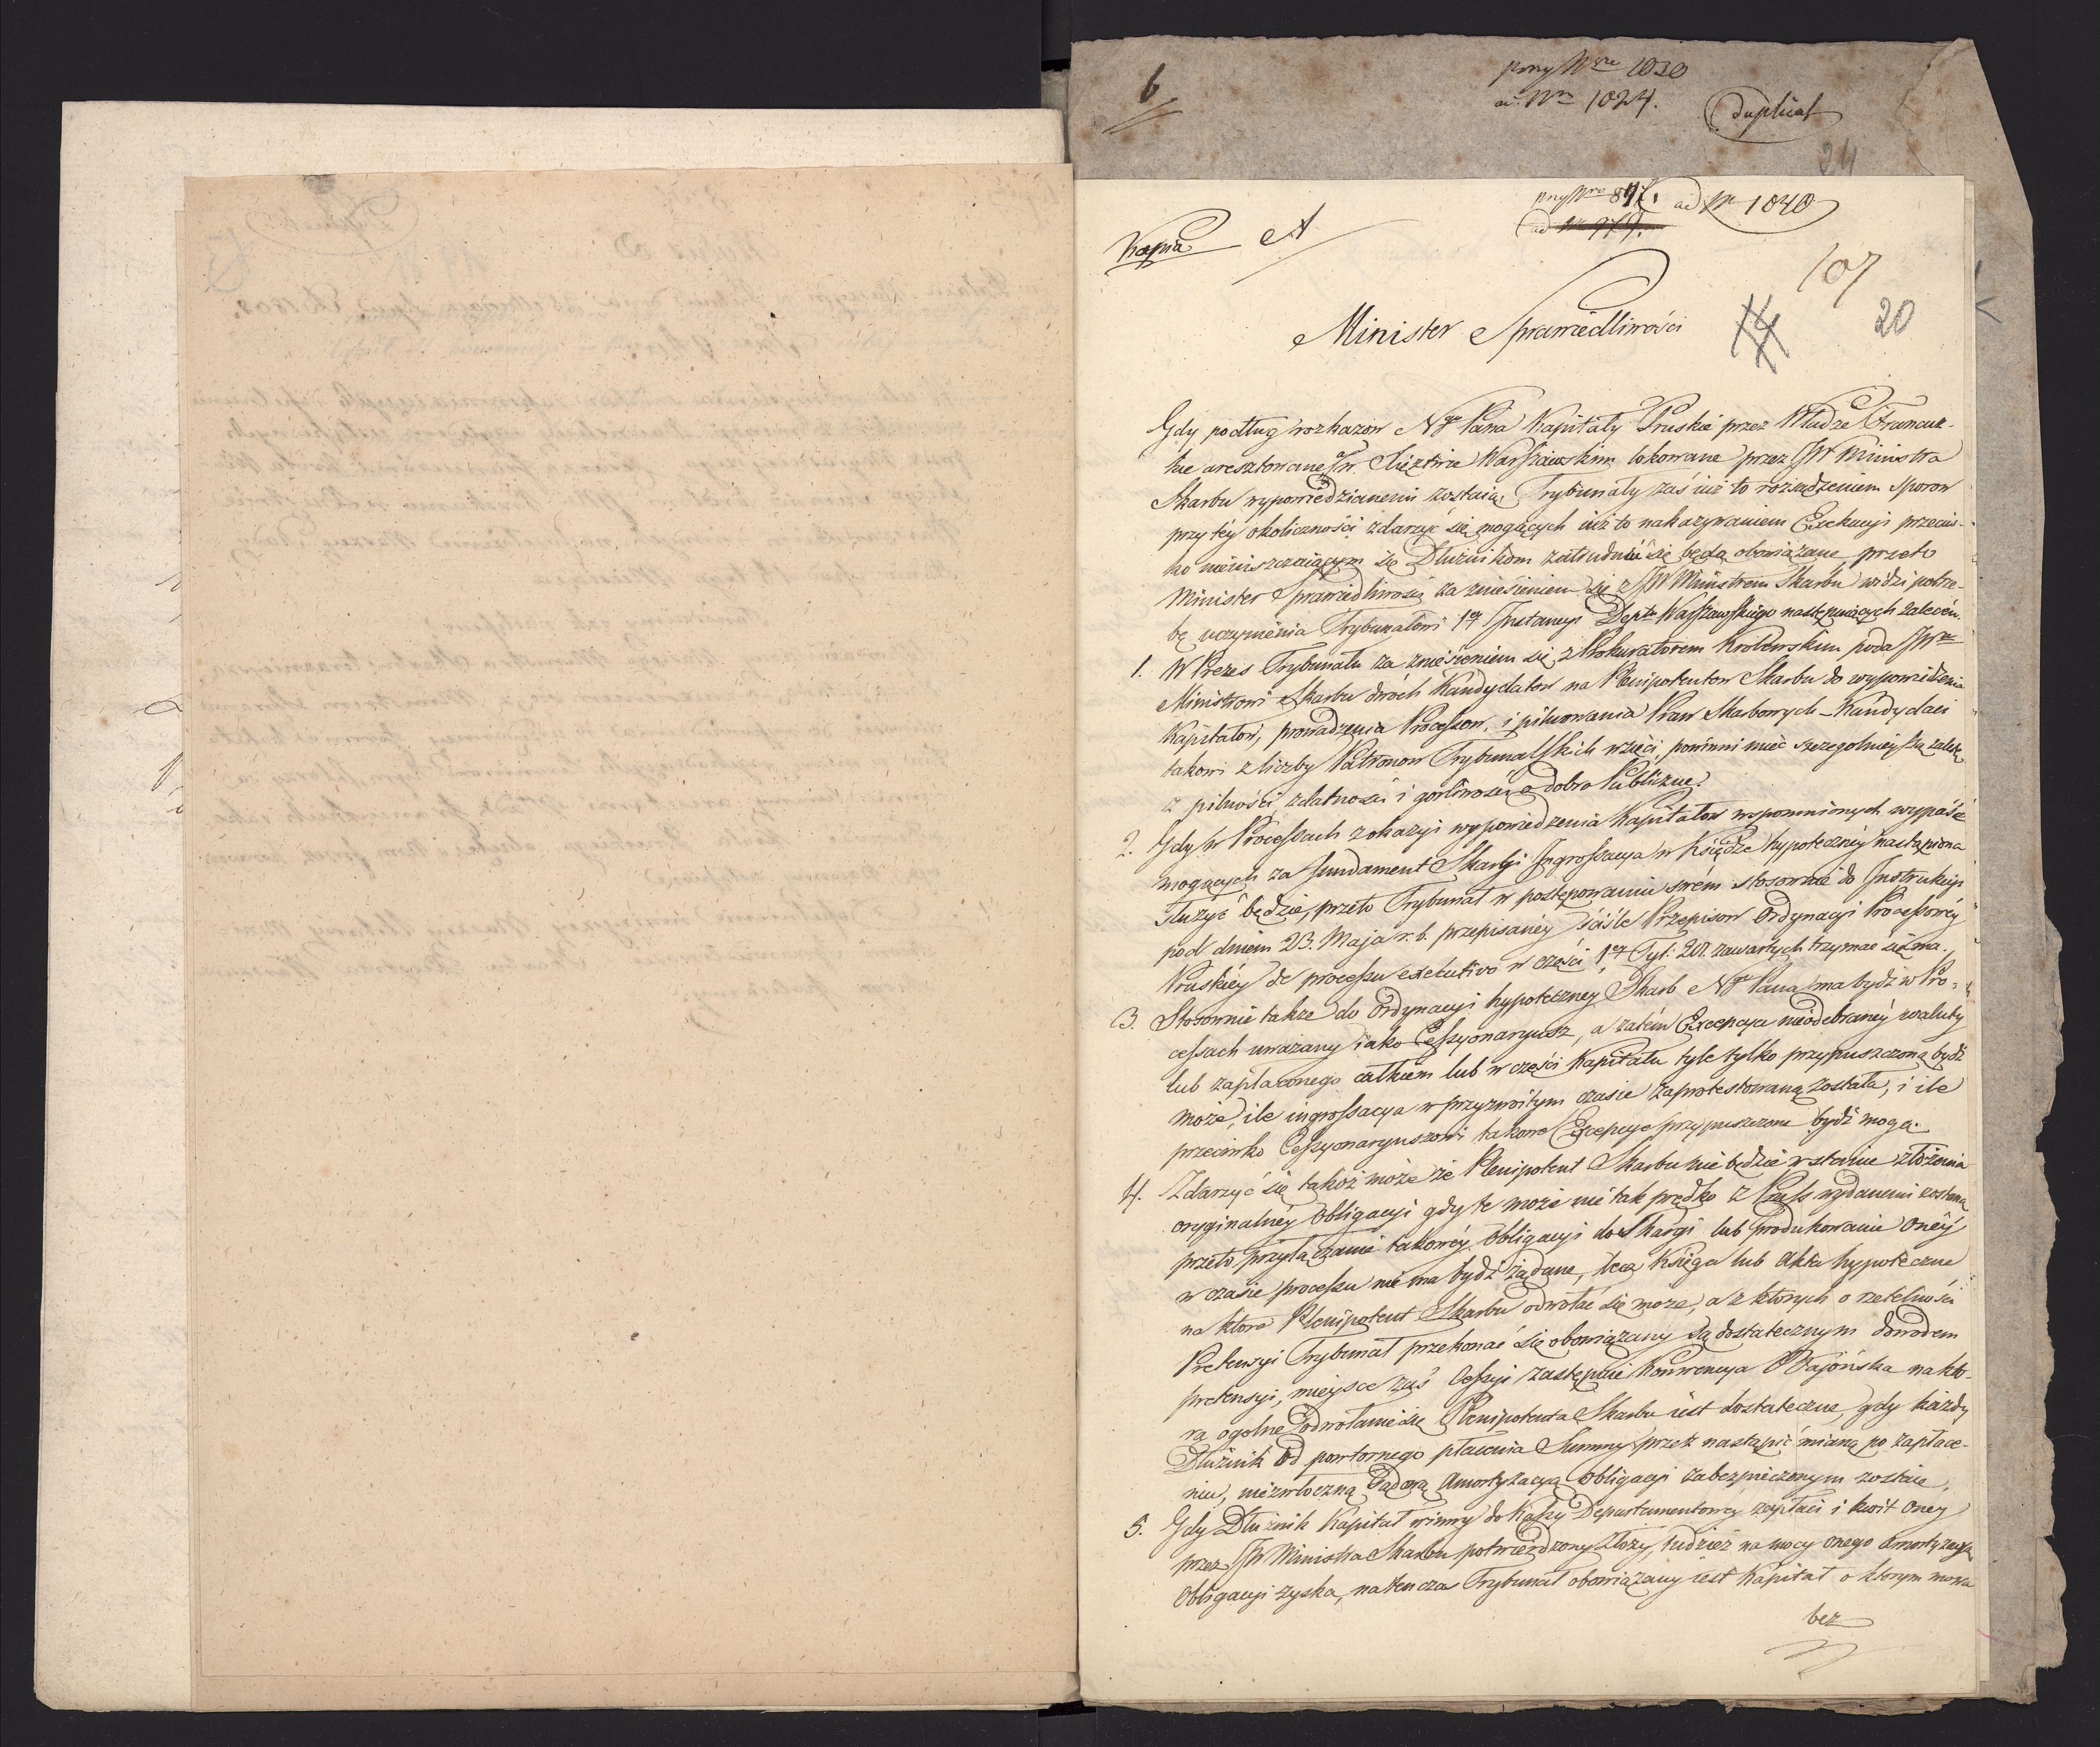 6
przy Nrze 1030
ad Nm 1024.
Duplicat
24
przy Nro 897. ad Nr 1040
ad Nr 979.
Kopia A
107
20
14
Minister Sprawiedliwości
Gdy podług rozkazow Ngo Pana Kapitały Pruskie przez Władze Francuz-
kie aresztowane w Xięztwie Warszawskim lokowane przez JW Ministra
Skarbu wypowiedzianemi zostaią, Trybunały zaś iuż to rozsądzeniem Sporow
przy téy okoliczności zdarzyć się mogących iuż to nakazywaniem Exekucyi przeciw-
ko nieuiszczaiącym się Dłużnikom zatrudnić się będą obowiązane, przeto
Minister Sprawiedliwości za zniesieniem się z JW Ministrem Skarbu widzi potrze-
bę uczynienia Trybunałowi 1ey Instancyi Deptu Warszawskiego następuiących zaleceń.
1. W Prezes Trybunału za zniesieniem się z Prokuratorem Krolewskim poda JWmu
Ministrowi Skarbu dwóch Kandydatow na Plenipotentow Skarbu do wypowiedzenia
Kapitałow, prowadzenia Processow, i pilnowania Praw Skarbowych – Kandydaci
takowi z liczby Patronow Trybunalskich wzięci, powinni mieć szczegolnieyszą zaletę
z pilności zdatności i gorliwości o dobro Publiczne.
2. Gdy w Processach z okazyi wypowiedzenia Kapitałow wspomnionych wypaść
mogących za fundament Skargi Ingrossacya w Księdze hypoteczney nastąpiona
służyć będzie, przeto Trybunał w postępowaniu swém stosownie do Instrukcyi
pod dniem 23. Maja r. b. przepisanéy ściśle Przepisow Ordynacyi Processowéy
Pruskiéy de processu executivo w części 1ey Tyt: 28. zawartych trzymać się ma.
3. Stosownie także do Ordynacyi hypoteczney Skarb Ngo Pana ma bydź w Pro-
cessach uważany iako Cessyonaryusz, a zatém Excepcya nieodebranéy waluty
lub zapłaconego całkiem lub w części Kapitału tyle tylko przypuszczoną bydź
może, ile ingrossacya w przyzwoitym czasie zaprotestowaną została, i ile
przeciwko Cessyonaryuszowi takowe Excepcye przypuszczone bydź mogą.
4. Zdarzyć się takoż może że Plenipotent Skarbu nie będzie w stanie złożenia
oryginalnéy Obligacyi gdy te może nie tak prędko z Pruss wydanemi zostaną
przeto przyłączanie takowéy Obligacyi do Skargi lub produkowanie onéy
w czasie processu nie ma bydź żądane, lecz Księga lub Akta hypoteczne
na ktore Plenipotent Skarbu odwołać się może, a z ktorych o rzetelności
Pretensyi Trybunał przekonać się obowiązany są dostatecznym dowodem
pretensyi, mieysce zaś Cessyi zastępuie Konwencya Bajońska na kto-
rą ogolne odwołanie się Plenipotenta Skarbu iest dostateczne, gdy każdy
Dłużnik od powtornego płacenia Summy przez nastąpić mianą po zapłace-
niu, niezwłoczną Sądową Amortyzacyą Obligacyi zabezpieczonym zostaie.
5. Gdy Dłużnik Kapitał winny do Kassy Departamentowey zapłaci i kwit oney
przez JW Ministra Skarbu potwierdzony złoży, tudzież na mocy onego Amortyzacyą
Obligacyi zyska, natenczas Trybunał obowiązany iest Kapitał o ktorym mowa
bez